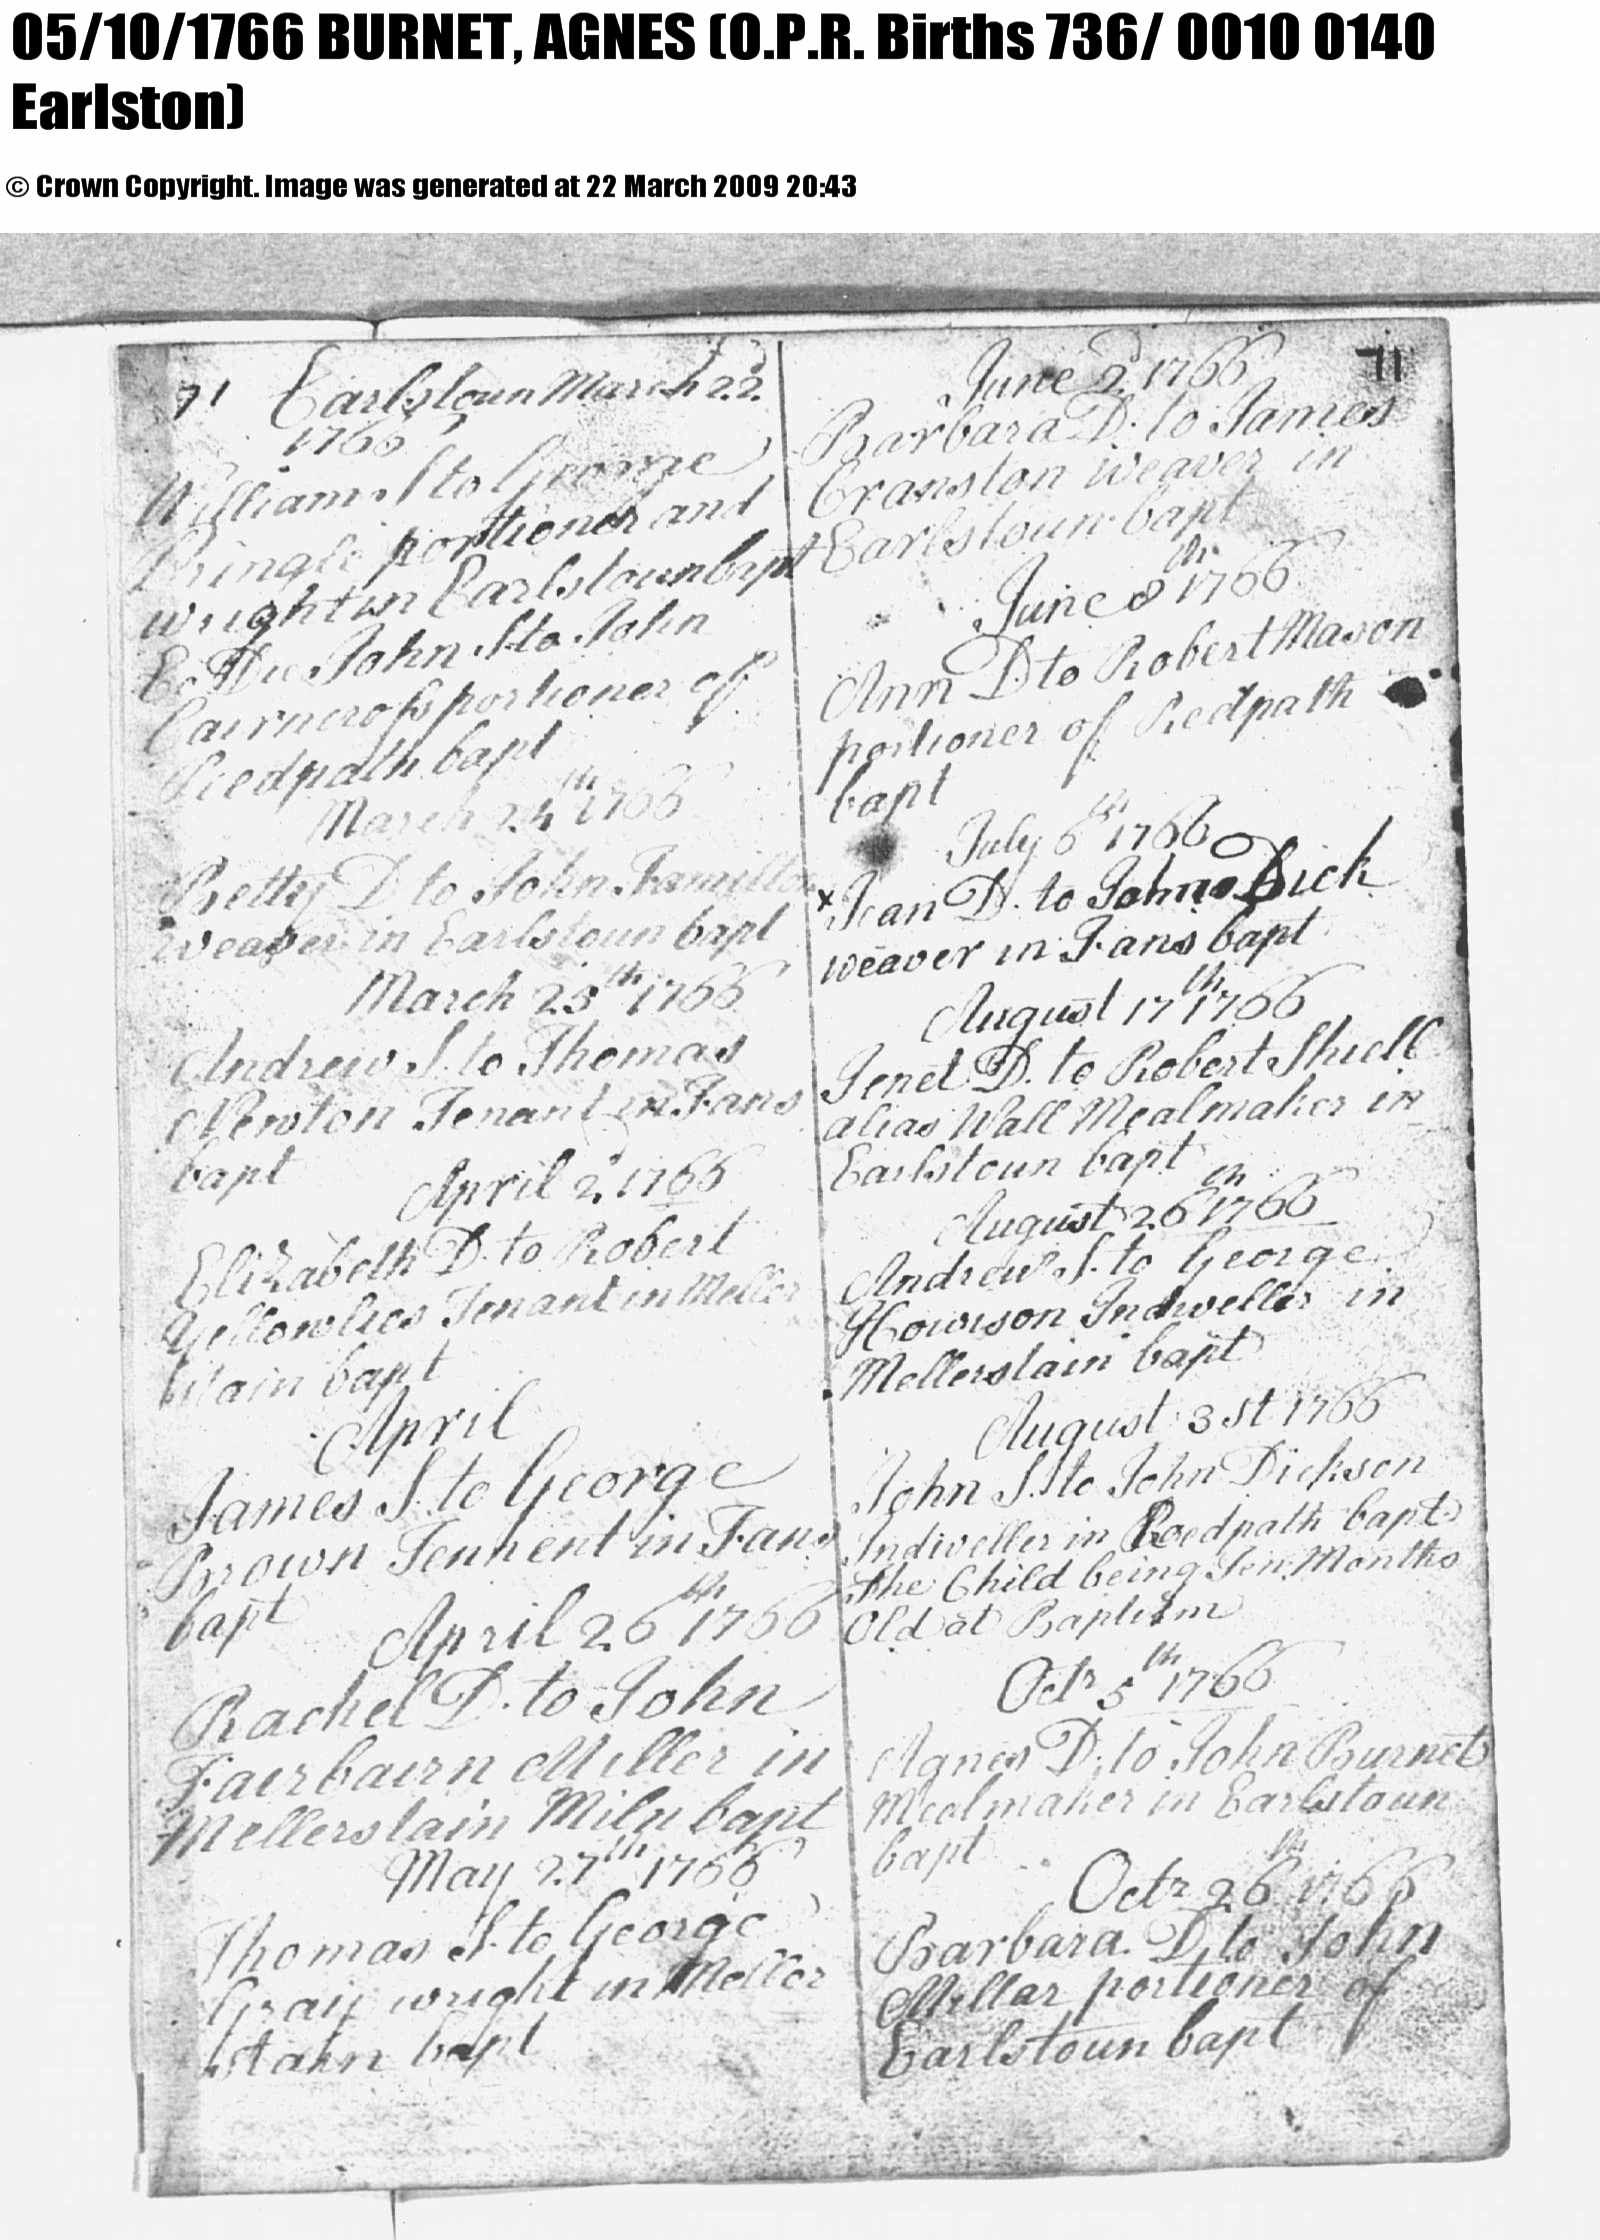 05/10/1766 BURNET, AGNES (O.P.R. Births 736/ 0010 0140
Earlston)
© Crown Copyright. Image was generated at 22 March 2009 20:43
71 Earlstoun March 22d
1766
William S to George
Pringle portioner and
wright in Earlstoun bapt
Eo Die John S to John
Cairncross portioner of
Redpath bapt
March 24th 1766
Betty D to John Hamilton
weaver in Earlstoun bapt
March 25th 1766
Andrew S. to Thomas
Newton Tenant in Fans
bapt
April 2d 1766
Elizabeth D. to Robert
Yellowlies Tenant in Meller
stain bapt
April
James S. to George
Brown Tennent in Fans
bapt
April 26th 1766
Rachel D. to John
Fairbairn Miller in
Mellerstain Miln bapt
May 27th 1766
Thomas S. to George
Gray wright in Meller
stain bapt
71
June 2d 1766
Barbara D. to James
Cranston weaver in
Earlstoun bapt
June 8th 1766
Ann D to Robert Mason
portioner of Redpath
bapt
July 6th 1766
x Jean D. to John Dick
weaver in Fans bapt
August 17th 1766
Jenet D. to Robert Shiell
alias Wall Mealmaker in
Earlstoun bapt
August 26th 1766
Andrew S. to George
Howison Indweller in
Mellerstain bapt
August 31st 1766
John S. to John Dickson
Indweller in Redpath bapt
the Child being Ten Months
Old at Baptism
Octr 5th 1766
Agnes D. to John Burnet
Mealmaker in Earlstoun
bapt
Octr 26th 1766
Barbara D. to John
Millar portioner of
Earlstoun bapt